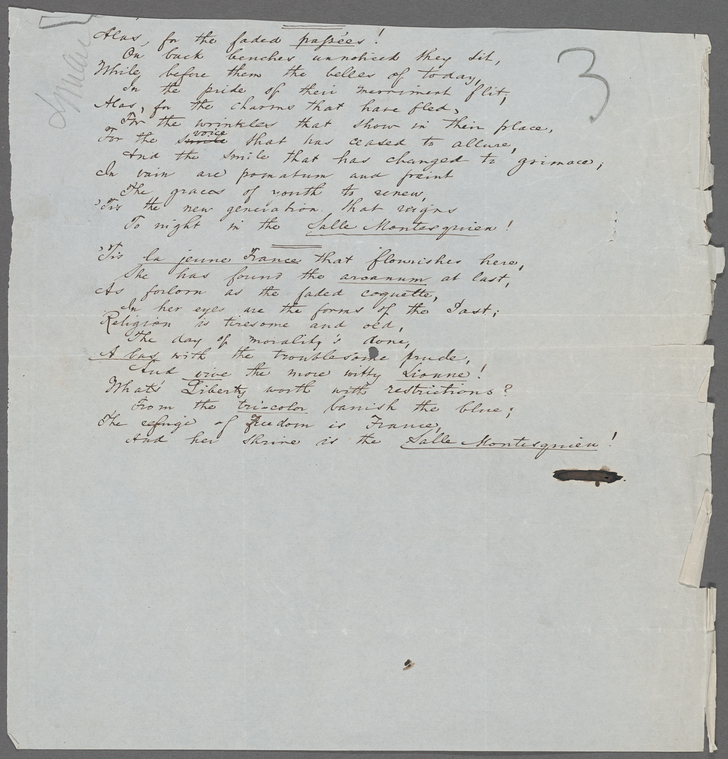 3
Alas, for the faded passées!
On back benches unnoticed they sit,
While before them the belles of today,
In the pride of their merriment flit,
Alas, for the charms that have fled,
For the wrinkles that show in their place,
For the smile voice that has ceased to allure,
And the smile that has changed to grimace;
In vain are pomatum and paint
The graces of youth to renew,
'Tis the new generation that reigns
To night in the Salle Montesquieu!
'Tis la jeune France that flourishes here,
She has found the arcanum at last,
As forlorn as the faded coquette,
In her eyes are the forms of the Past;
Religion is tiresome and old,
The day of morality's done,
A bas with the troublesome prude,
And vive the more witty Lionne!
What's Liberty worth with restrictions?
From the tricolor banish the blue;
The refuge of freedom is France,
And her shrine is the Salle Montesquieu!